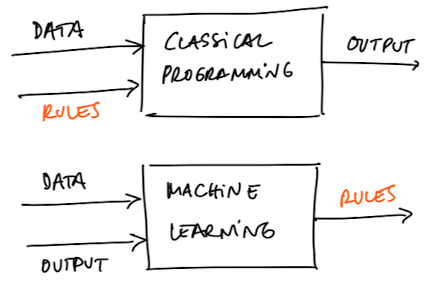 DATA
RULES
CLASSICAL
PROGRAMMING
OUTPUT
DATA
OUTPUT
MACHINE
LEARNING
RULES